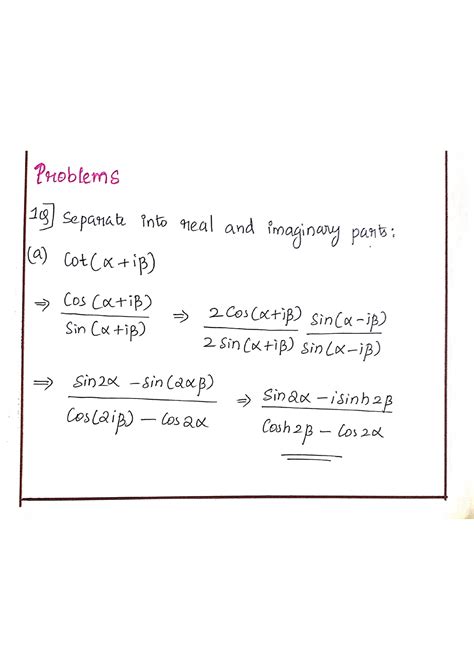 Problems
1Q] Separate into real and imaginary parts:
(a) Cot(α+iβ)
⇒ Cos(α+iβ) / Sin(α+iβ) ⇒ 2Cos(α+iβ) / 2Sin(α+iβ) Sin(α-iβ) / Sin(α-iβ)
⇒ Sin2α - Sin(2αβ) / Cos(2iβ) - Cos2α ⇒ Sin2α - iSinh2β / Cosh2β - Cos2α